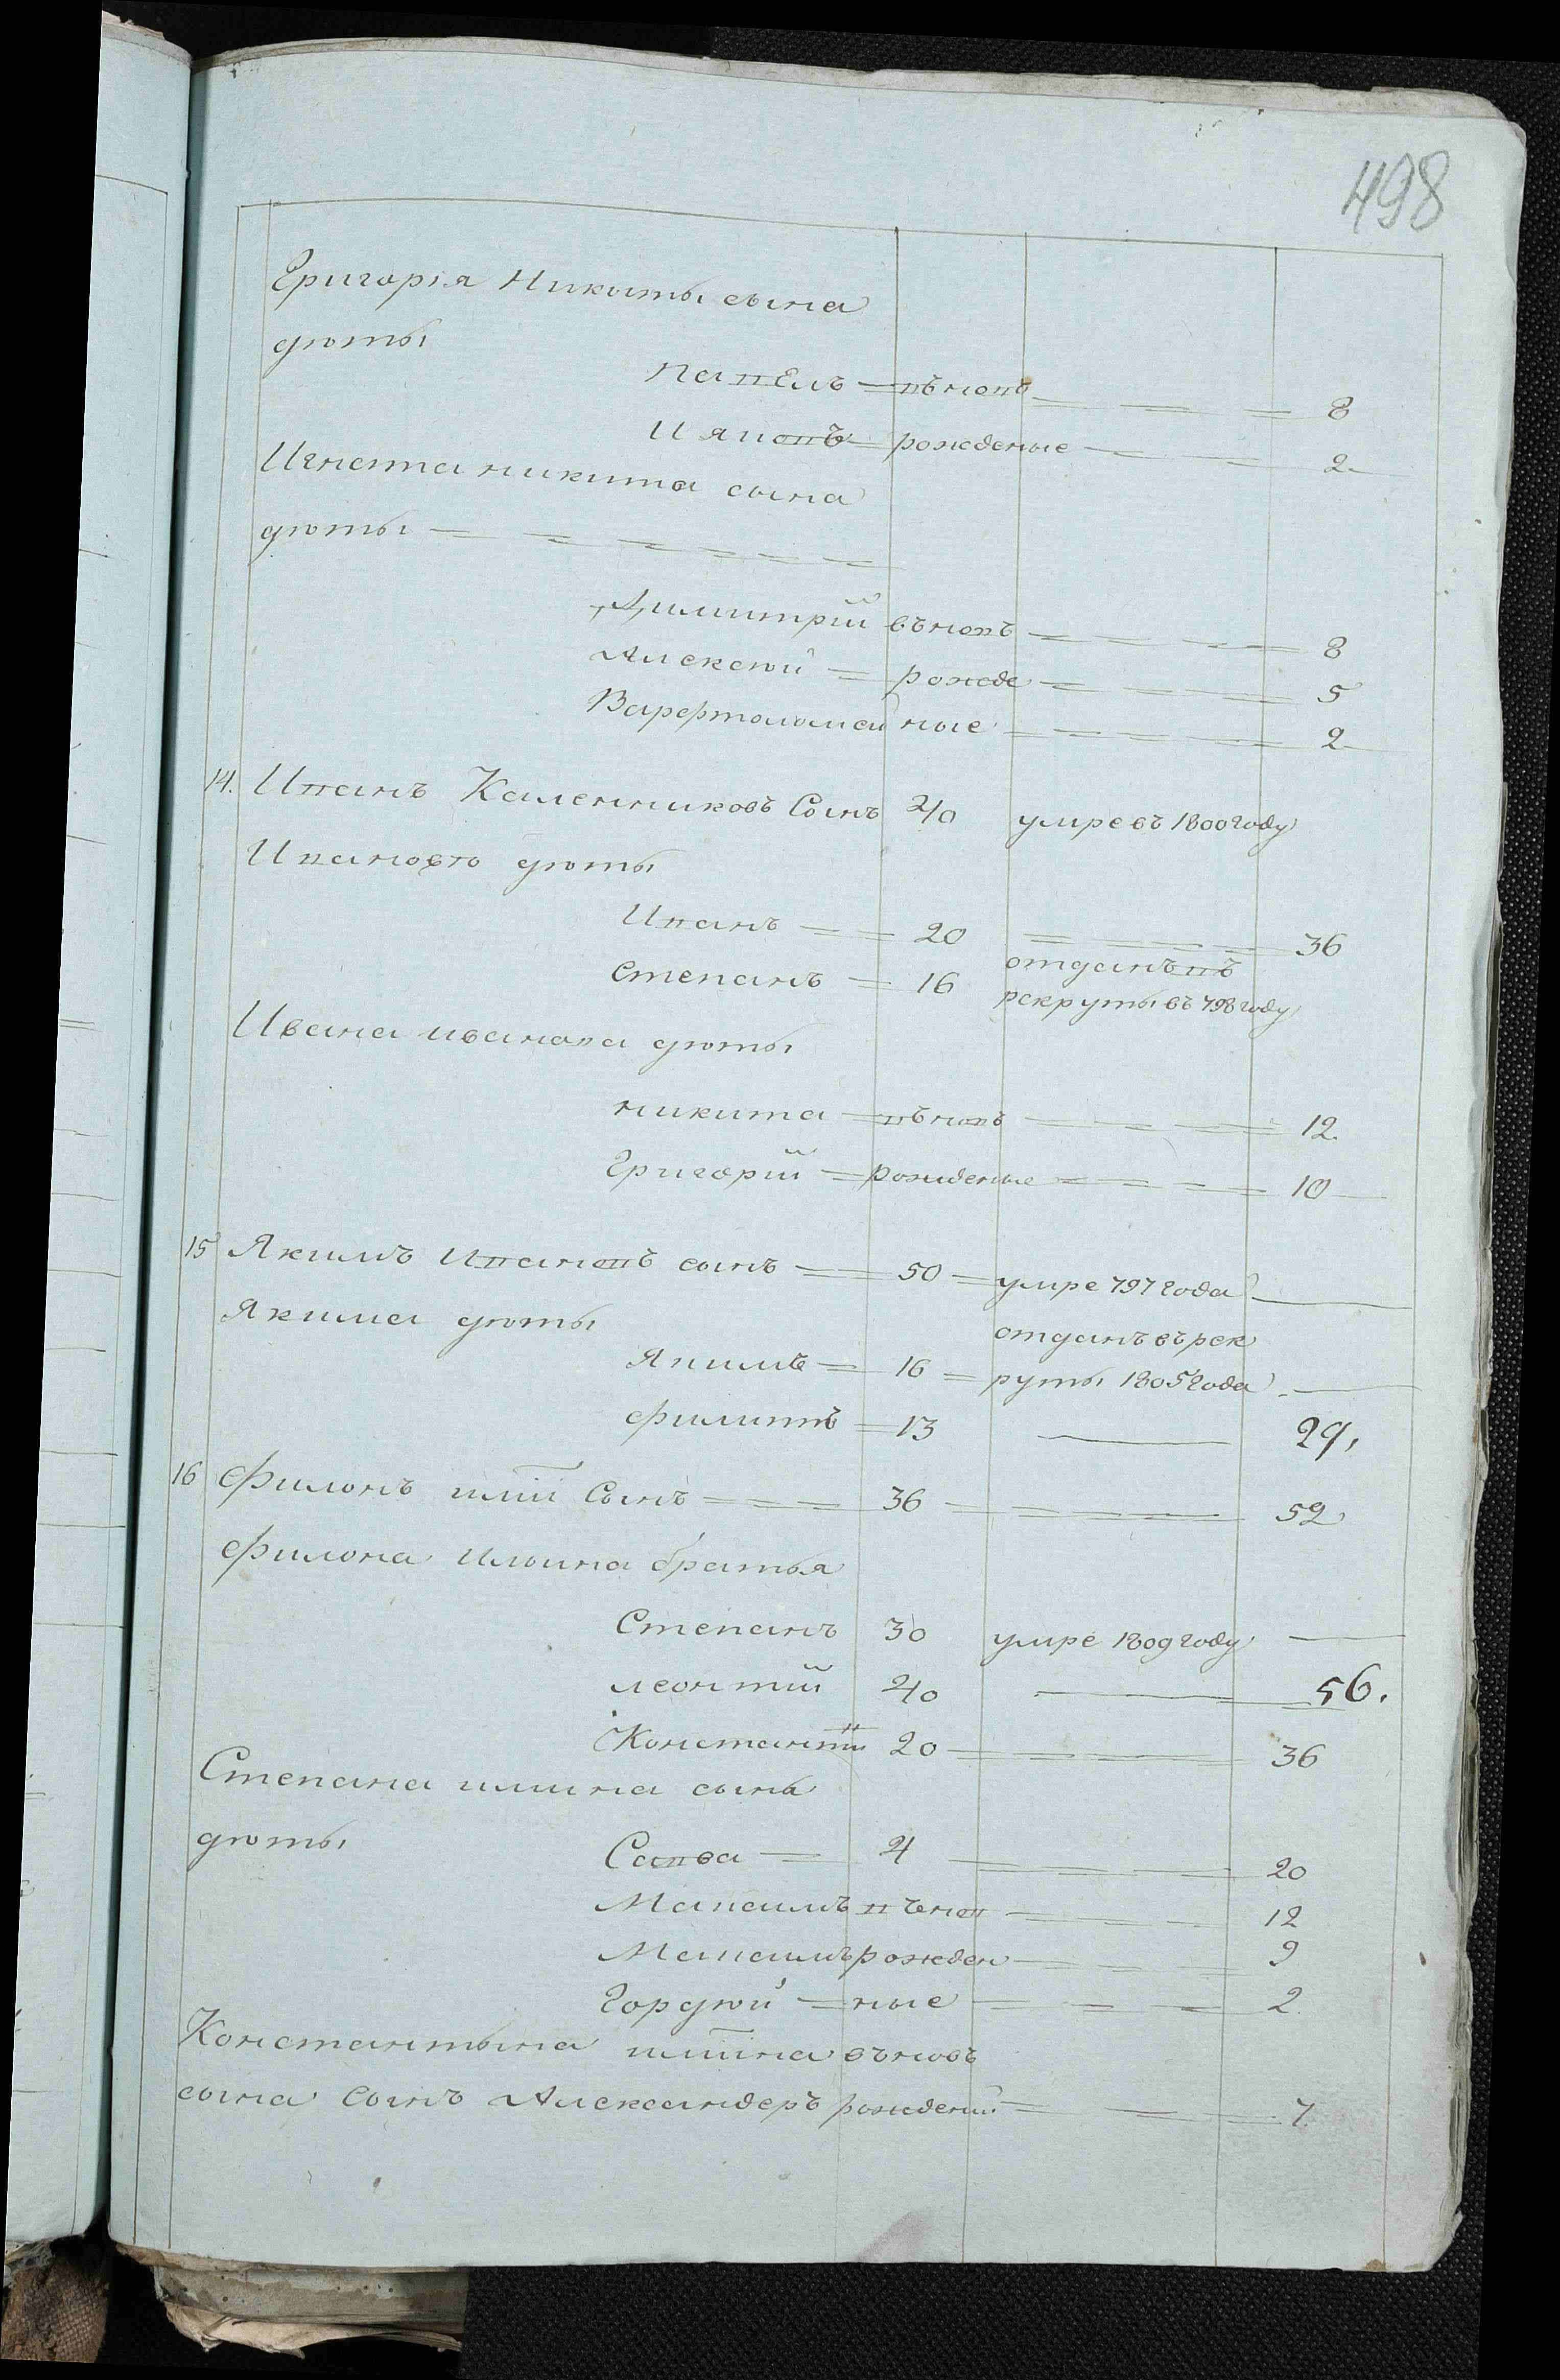 498
Григорія Никиты сына
дѣти
Павелъ — въновь — 8
Ияковъ — рожденые — 2
Игната никита сына
дѣти
Димитрій въновь — 8
Алексѣй — рожде — 5
Варфтоломей ные — 2
14. Иванъ Каленниковъ Сынъ 40 умре въ 1800 году
Ивановы дѣти
Иванъ — 20 — 36
Степанъ — 16 отданъ въ
рекруты въ 798 году
Ивана иванова дѣти
никита — въновь — 12.
Григорій — рожденые — 10
15 Якимъ Ивановъ сынъ — 50 — умре 797 года
Якима дѣти
отданъ въ рек
Якимъ — 16 — руты 1805 года
филипъ — 13 — 29.
16 Филонъ илїи Сынъ — 36 — 52
Филона Ильина братья
Степанъ 30 умре 1809 году
леонтій 40 — 56.
Константи 20 — 36
Степана илина сына
дѣти
Савва — 4 — 20
Максимъ въ нов — 12
Максимъ рожден — 9
Гордѣй — ные — 2.
Константына илїина въновь
сына Сынъ Александеръ рожденый — 7.